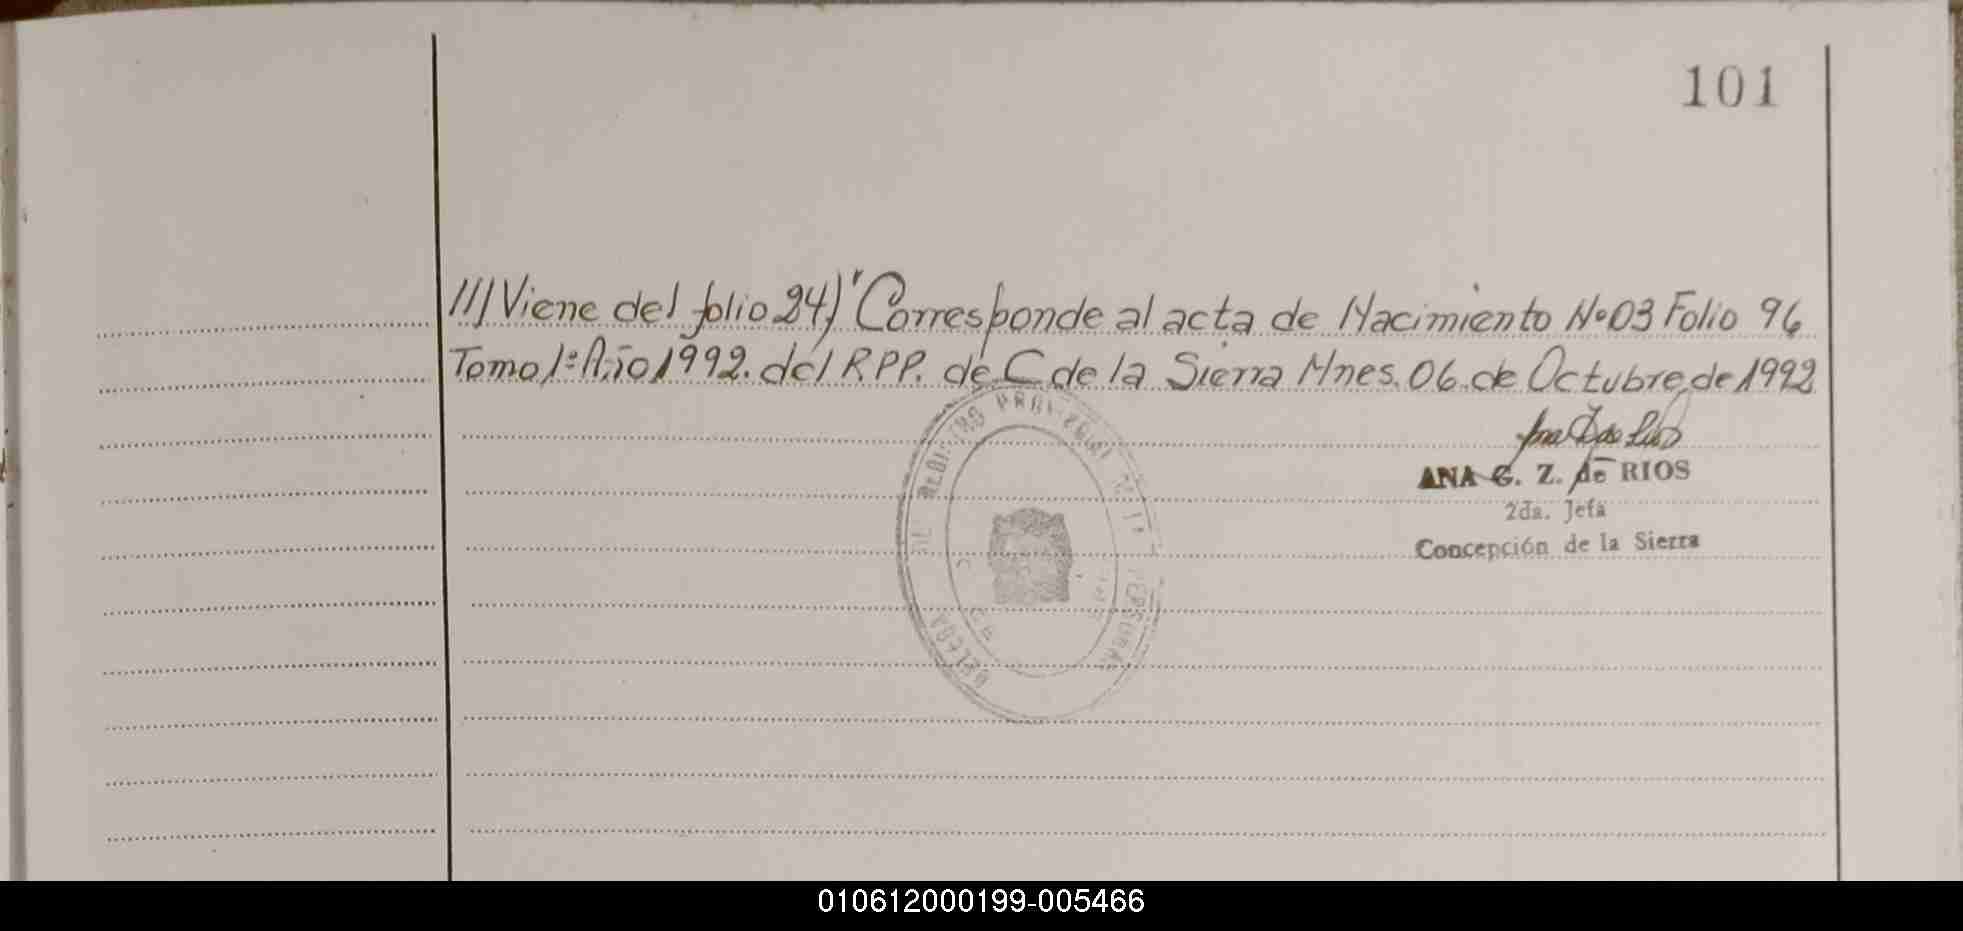 101
///Viene del folio 24) "Corresponde al acta de Nacimiento Nº03 Folio 96
Tomo 1º Año 1992. del RPP. de C de la Sierra Mnes. 06 de Octubre de 1992
ANA G. Z. de RIOS
2da. Jefa
Concepción de la Sierra
010612000199-005466